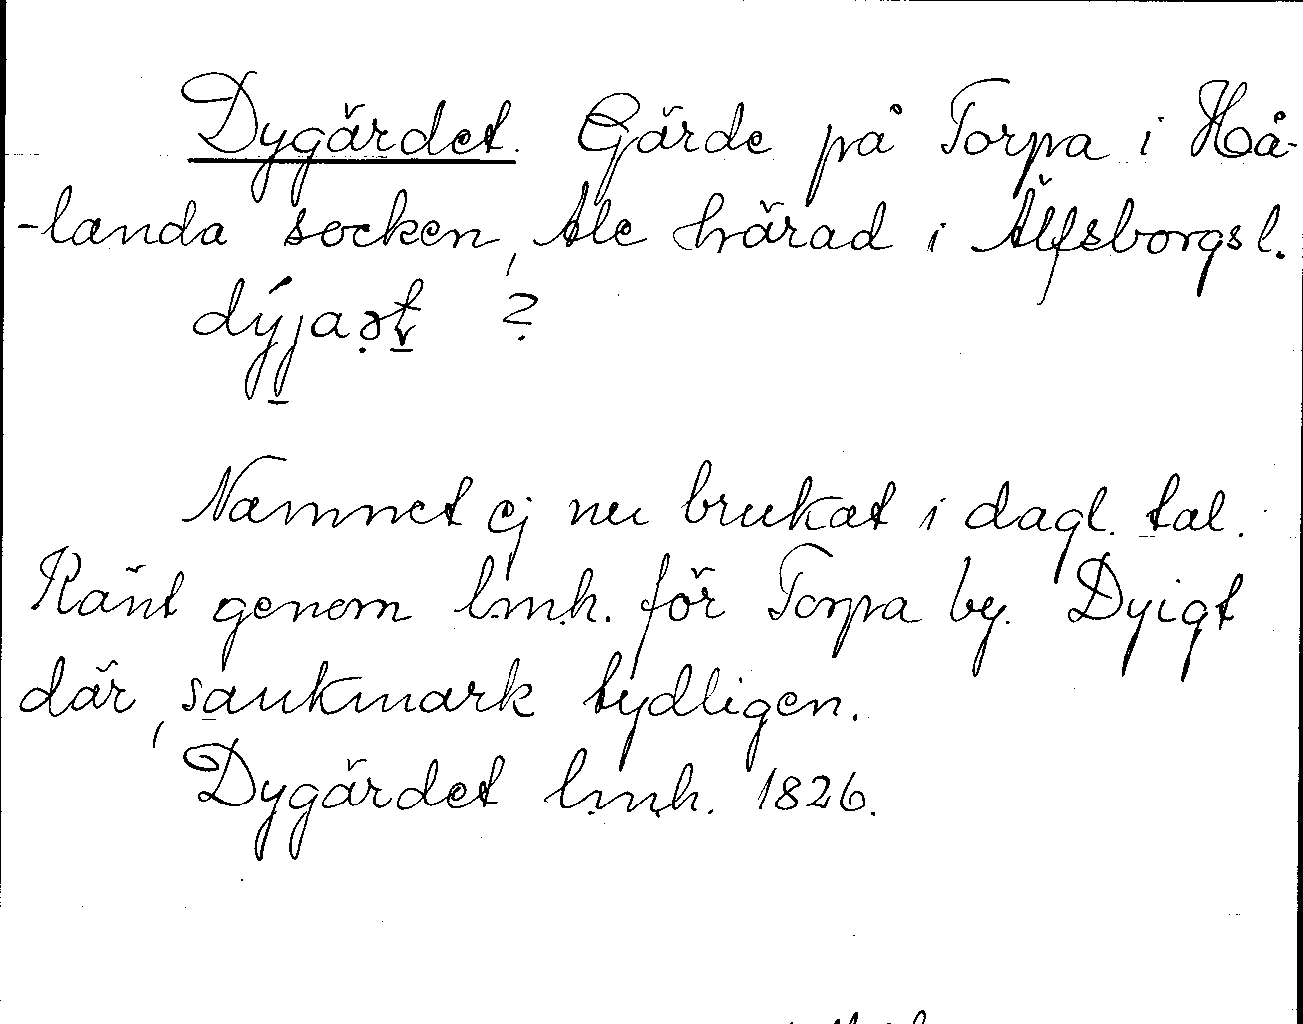 Dygärdet. Gärde på Torpa i Hå-
-landa socken, Ale härad i Älfsborgs l.
Namnet ej nu brukat i dagl. tal.
Känt genom l.m.h. för Torpa by. Dyigt
där, sankmark tydligen.
Dygärdet l.m.h. 1826.